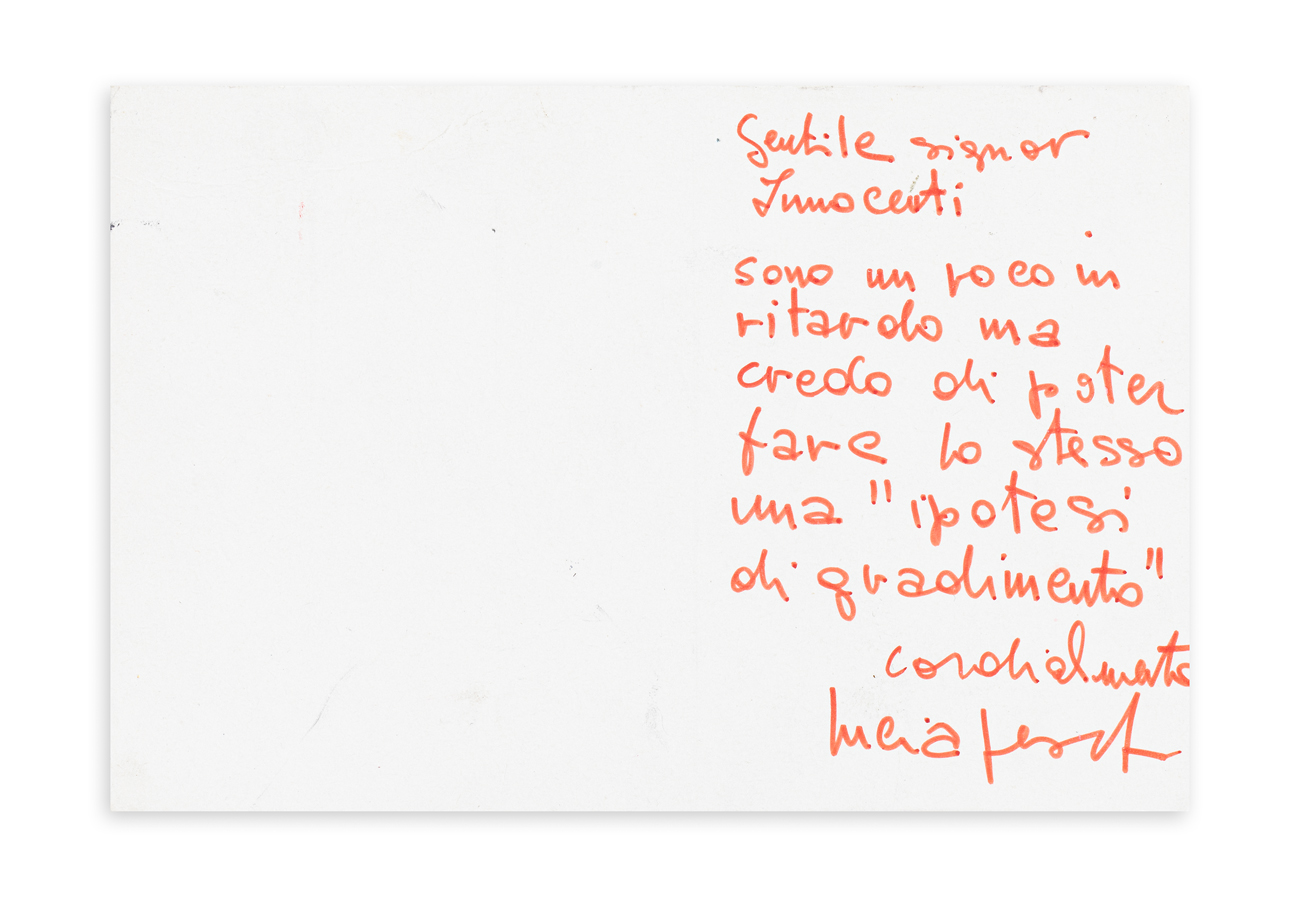 Gentile signor
Innocenti
sono un poco in
ritardo ma
credo di poter
fare lo stesso
una "ipotesi
di gradimento"
cordialmente
lucia